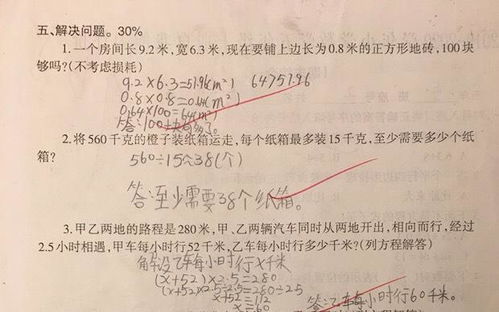 五、解决问题。30%
1.一个房间长9.2米，宽6.3米，现在要铺上边长为0.8米的正方形地砖，100块
够吗?(不考虑损耗)
9.2×6.3=57.96(m²) 64>57.96
0.8×0.8=0.64(m²)
0.64×100=64(m²)
答:100
2.将560千克的橙子装纸箱运走，每个纸箱最多装15千克，至少需要多少个纸
箱?
560÷15≈38(个)
答:至少需要38个纸箱。
3.甲乙两地的路程是280米，甲、乙两辆汽车同时从两地开出，相向而行，经过
2.5小时相遇，甲车每小时行52千米，乙车每小时行多少千米?(列方程解答)
解设乙车每小时行x千米
(x+52)×2.5=280
(x+52)×2.5÷2.5=280÷2.5
x+52=112
x=60
答:乙车每小时行60千米。